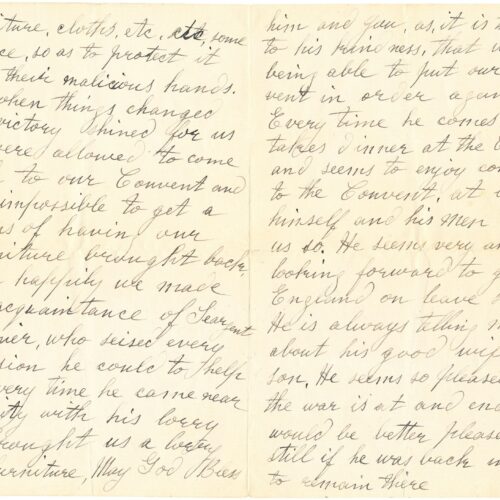 iture, clothes, etc, etc, some
ce, so as to protect it
their malicious hands.
when things changed
victory shined for us
were allowed to come
to our Convent and
impossible to get a
s of havin our
niture brought back.
happily we made
acquaintance of Seargent
ier, who seised every
sion he could to help
very time he came near
ity with his lorry
rought us a lorry
urniture, May God Bless
him and you, as, it is
to his kindness, that w
being able to put our
vent in order again
Every time he comes
takes dinner at the
and seems to enjoy co
to the Convent, at
himself and his men
us so. He seems very an
looking forward to g
England on leave
He is always talking
about his good wif
son. He seems so please
the war is at and end
would be better please
still if he was back in
to remain there